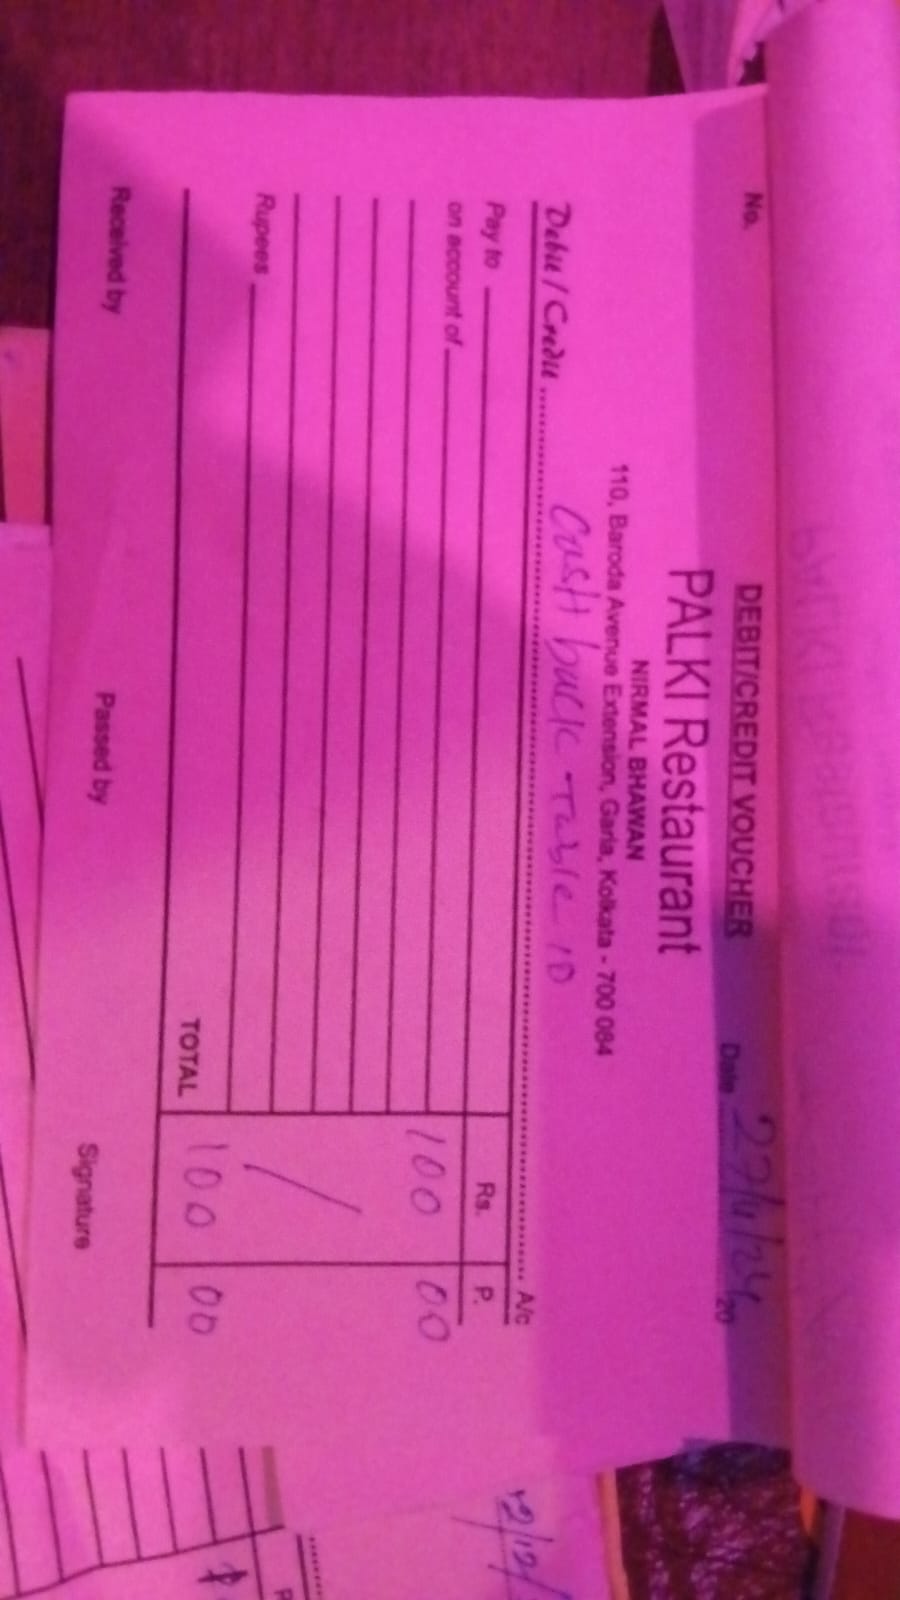 DEBIT/CREDIT VOUCHER
No. Date 27/11/24 20
PALKI Restaurant
NIRMAL BHAWAN
110, Baroda Avenue Extension, Garia, Kolkata - 700 084
Debit / Credit Cash back Table 10 A/c
Pay to Rs. P.
on account of 100 00
Rupees
TOTAL 100 00
Received by Passed by Signature
2/12/